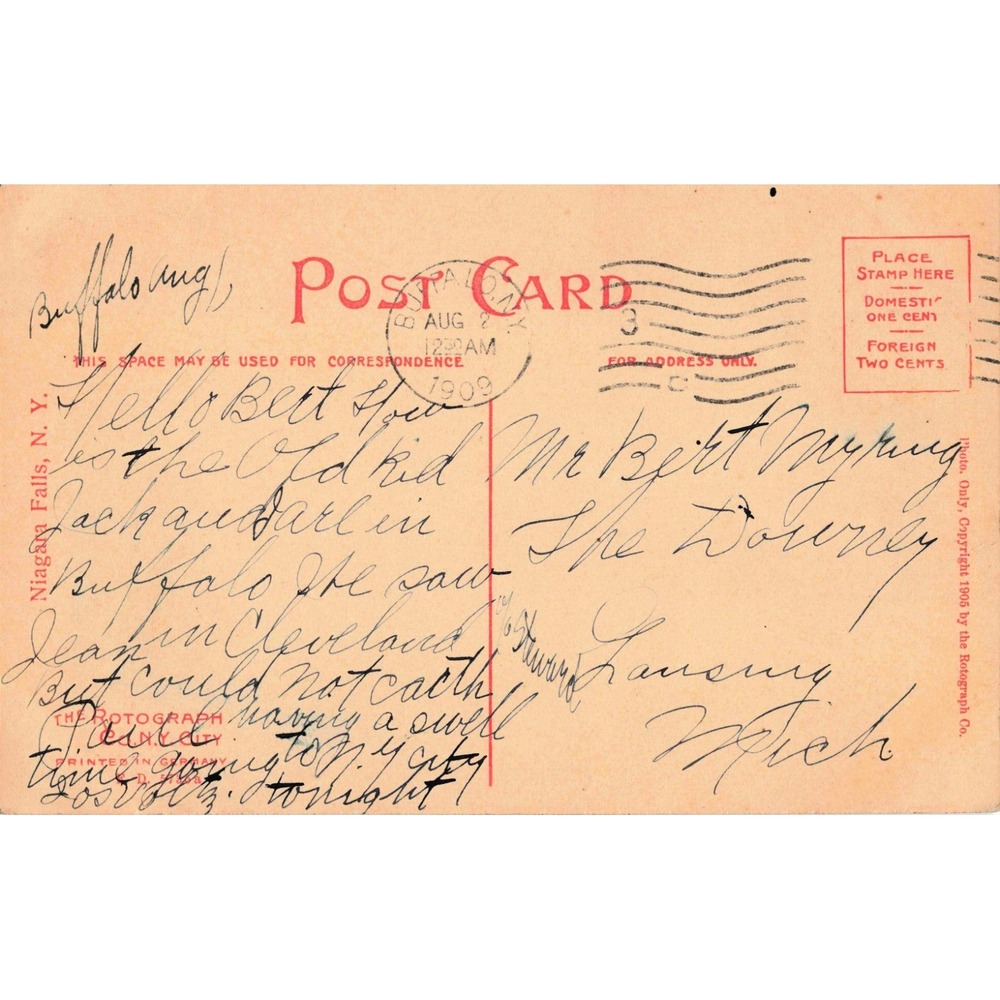 Buffalo Aug 1,
POST CARD
BUFFALO, N.Y.
AUG 2
12 30 AM
1909
3
PLACE
STAMP HERE
DOMESTIC
ONE CENT
FOREIGN
TWO CENTS
THIS SPACE MAY BE USED FOR CORRESPONDENCE
FOR ADDRESS ONLY.
Niagara Falls, N. Y.
Hello Bert How
is the Old kid
Jack and Earl in
Buffalo We saw
Jean in Cleveland
But could not catch
having a swell
time going to N.Y city
tonight
THE ROTOGRAPH
CO., N.Y. CITY
PRINTED IN GERMANY
Mr Bert Myring
The Downey
c/o Steward
Lansing
Mich.
Photo. Only, Copyright 1905 by the Rotograph Co.